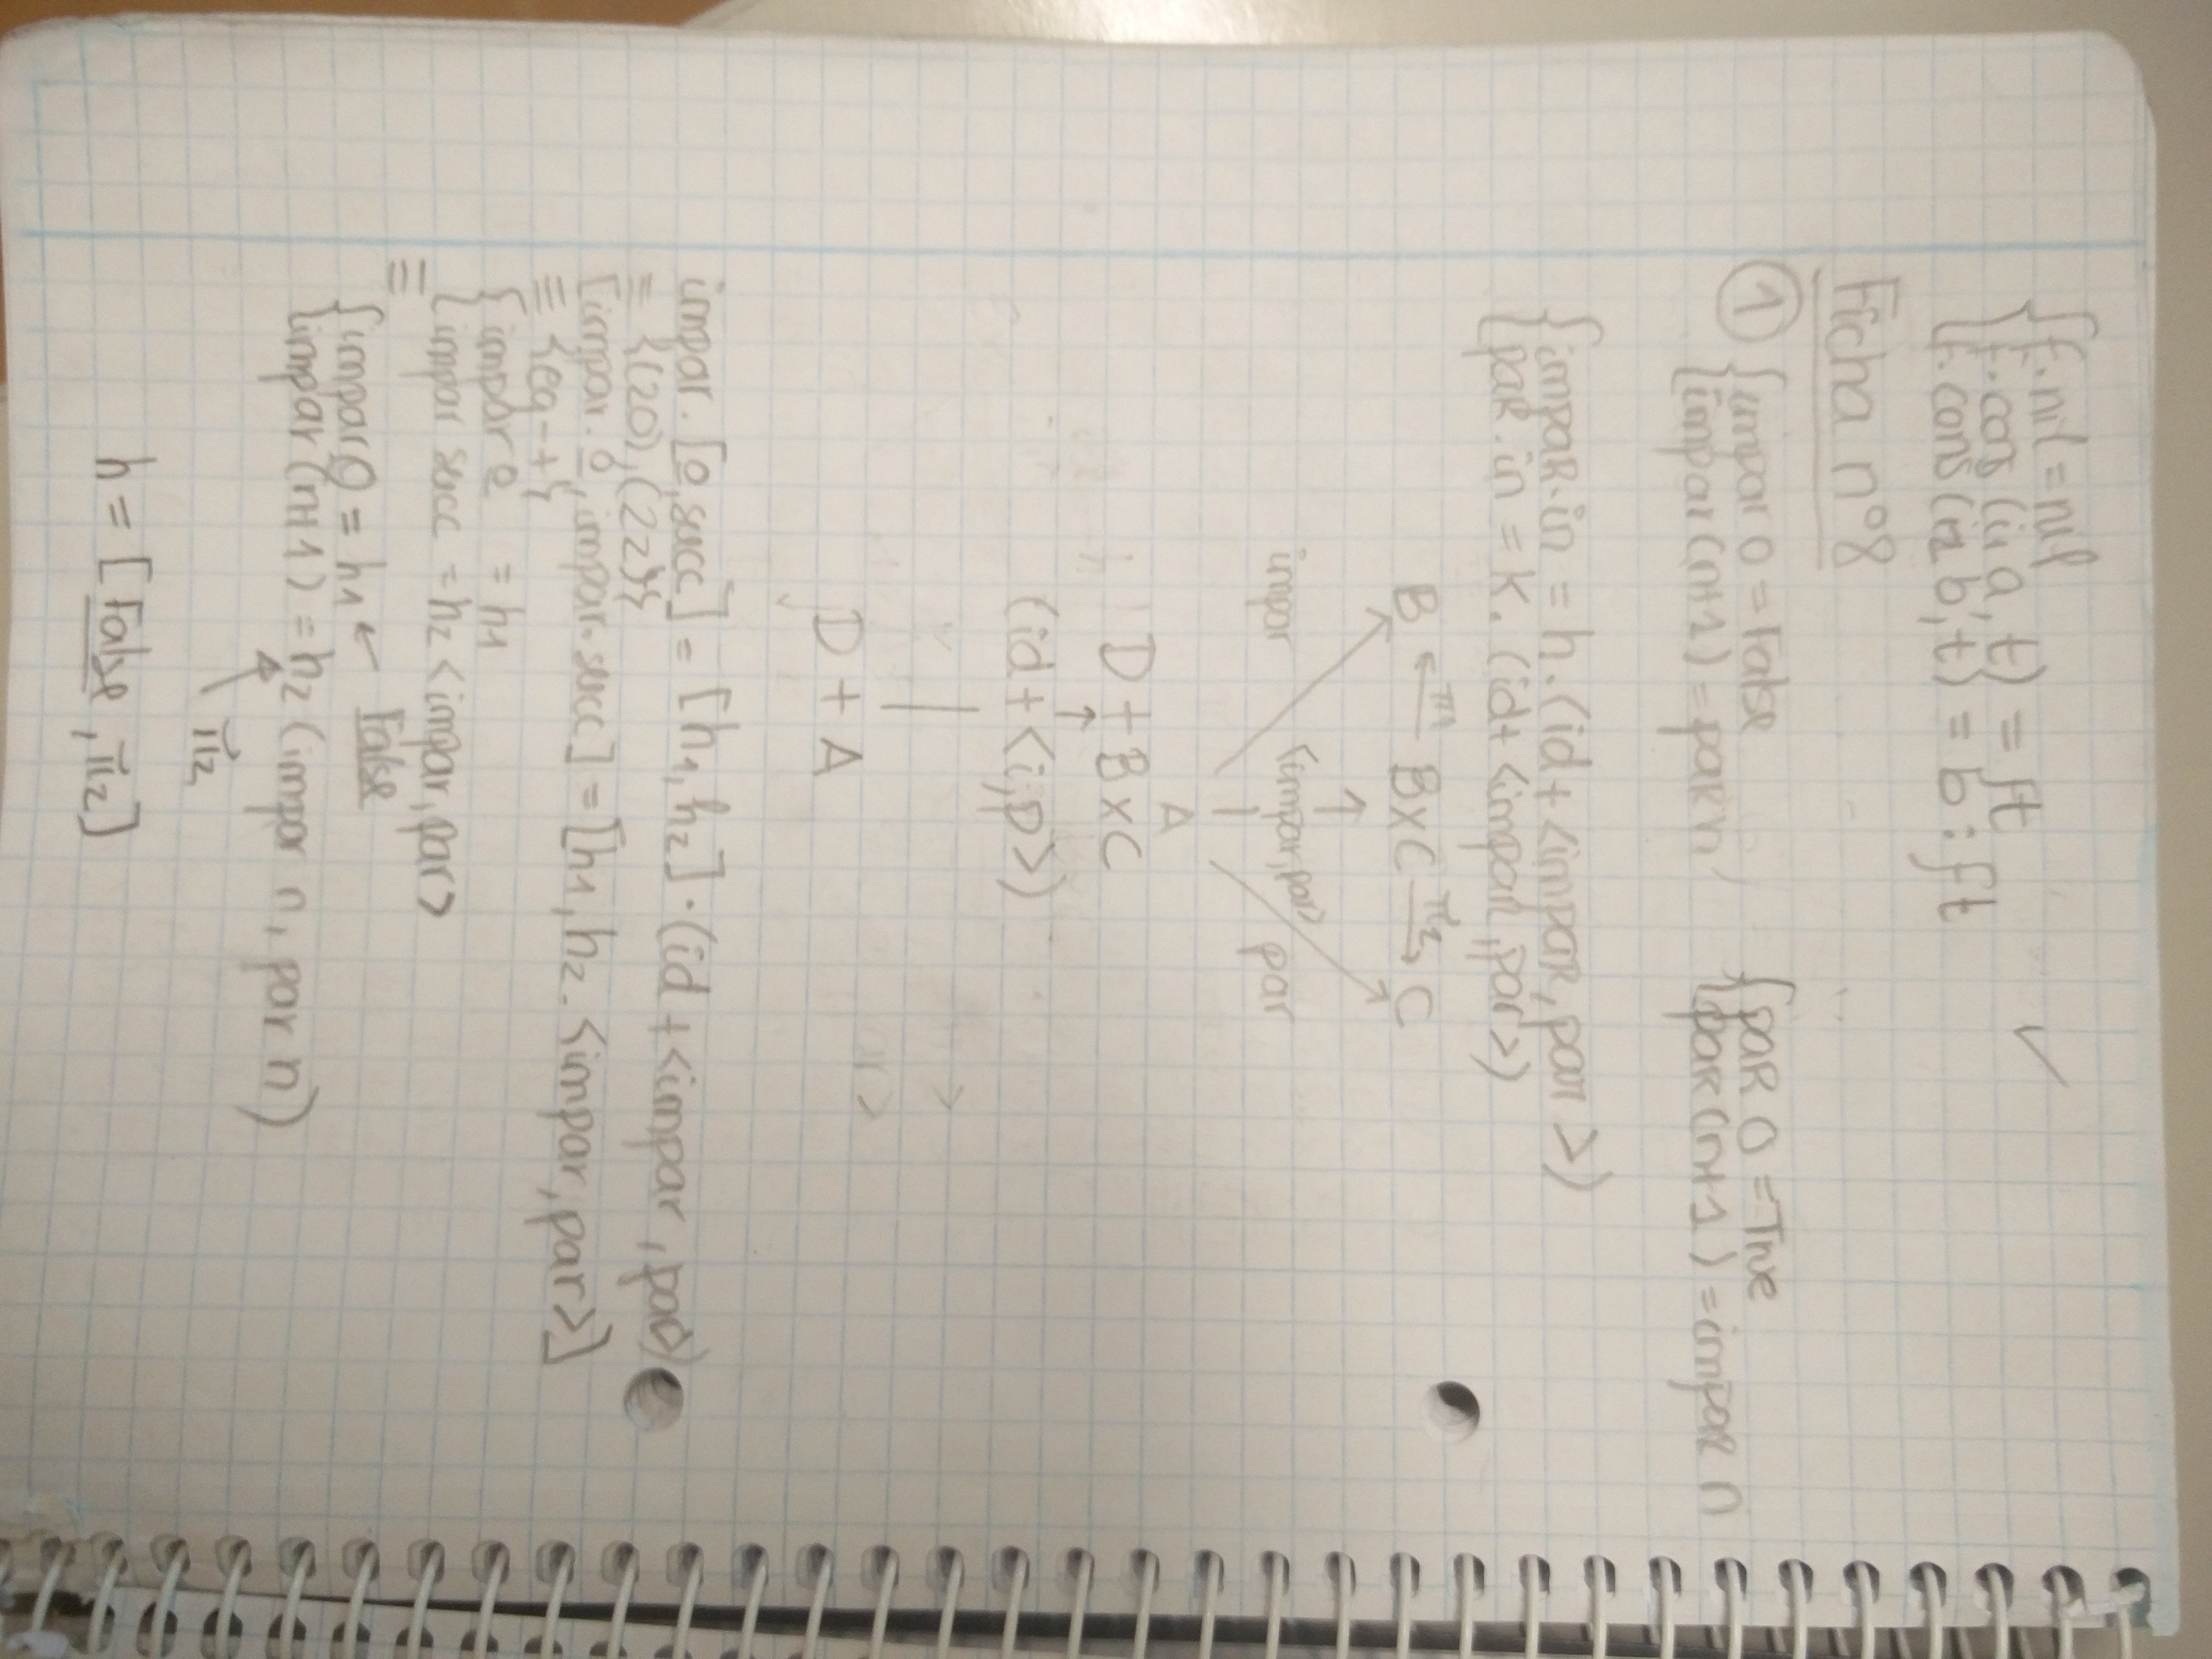 {f.nil = nil
f.cons (i1 a, t) = ft
f.cons (i2 b, t) = b : ft
✓
Ficha nº8
① {impar 0 = False
impar (n+1) = par n
{par 0 = True
par (n+1) = impar n
{impar.in = h.(id + <impar, par>)
par.in = k.(id + <impar, par>)
B ←π1 B×C π2→ C
impar <impar, par> par
A
D + B×C
↑
(id + <i, p>)
|
D + A
impar.[0, succ] = [h1, h2].(id + <impar, par>)
≡ {(20), (22)}
[impar.0, impar.succ] = [h1, h2.<impar, par>]
≡ {eq-+}
{impar 0 = h1
impar succ = h2 <impar, par>
≡
{impar 0 = h1 ← False
impar (n+1) = h2 (impar n, par n)
π2
h = [False, π2]